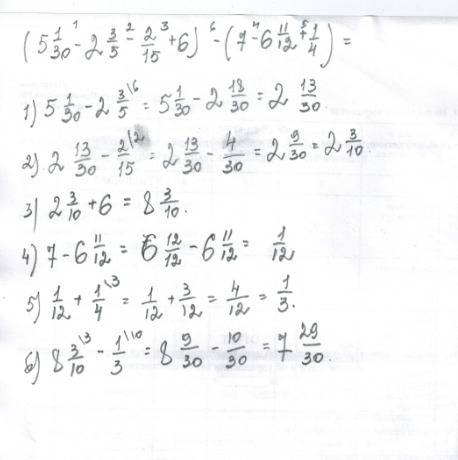 (5 1/30 -¹ 2 3/5 -² 2/15 +³ 6) -⁶ (7 -⁴ 6 11/12 +⁵ 1/4) =
1) 5 1/30 - 2 3/5 \6 = 5 1/30 - 2 18/30 = 2 13/30.
2) 2 13/30 - 2/15 \2 = 2 13/30 - 4/30 = 2 9/30 = 2 3/10.
3) 2 3/10 + 6 = 8 3/10.
4) 7 - 6 11/12 = 6 12/12 - 6 11/12 = 1/12
5) 1/12 + 1/4 \3 = 1/12 + 3/12 = 4/12 = 1/3.
6) 8 3/10 \3 - 1/3 \10 = 8 9/30 - 10/30 = 7 29/30.